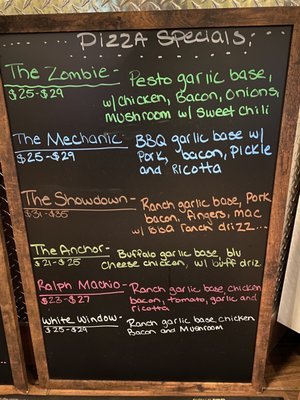 Pizza Specials
The Zombie - Pesto garlic base,
$25-$29 w/chicken, Bacon, Onions,
mushroom w/ sweet chili
The Mechanic - BBQ garlic base w/
$25-$29 Pork, bacon, Pickle
and Ricotta
The Showdown - Ranch garlic base, Pork
$31-$35 bacon, Fingers, mac
w/ bba ranch drizz...
The Anchor - Buffalo garlic base, blu
$21-$25 cheese chicken, w/ buff driz
Ralph Machio - Ranch garlic base, chicken
$23-$27 bacon, tomato, garlic and
ricotta
White Window - Ranch garlic base chicken
$25-$29 Bacon and Mushroom